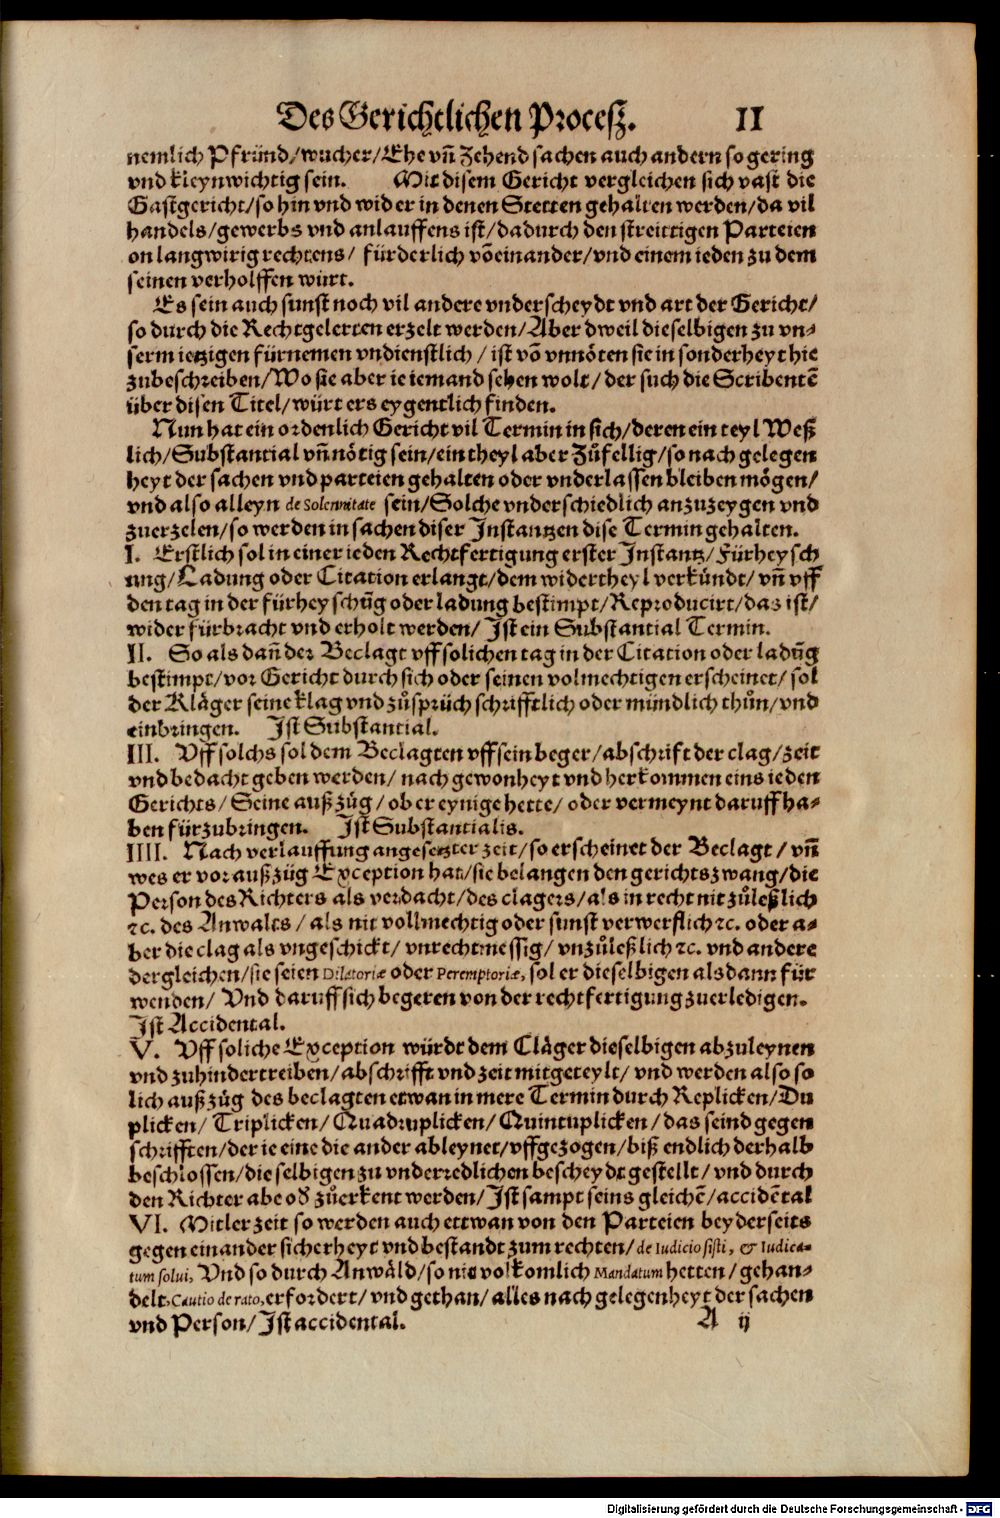 Des Gerichtlichen Procesz. II
nemlich Pfründ/wucher/Ehe vñ Zehend sachen auch andern so gering
vnd kleynwichtig sein. Mit disem Gericht vergleichen sich vast die
Gastgericht/so hin vnd wider in denen Stetten gehalten werden/da vil
handels/gewerbs vnd anlauffens ist/dadurch den streittigen Parteien
on langwirig rechtens/ fürderlich võeinander/vnd einem ieden zu dem
seinen verholffen würt.
Es sein auch sunst noch vil andere vnderscheydt vnd art der Gericht/
so durch die Rechtgelerten erzelt werden/Aber dweil dieselbigen zu vn-
serm ietzigen fürnemen vndienstlich / ist võ vnnöten sie in sonderheyt hie
zubeschreiben/Wo sie aber ie iemand sehen wolt/der such die Scribentẽ
über disen Titel/würt ers eygentlich finden.
Nun hat ein ordenlich Gericht vil Termin in sich/deren ein teyl Weß
lich/Substantial vñ nötig sein/ein theyl aber Zůfellig/so nach gelegen
heyt der sachen vnd parteien gehalten oder vnderlassen bleiben mögen/
vnd also alleyn de Solennitate sein/Solche vnderschiedlich anzuzeygen vnd
zuerzelen/so werden in sachen diser Instantzen dise Termin gehalten.
I. Erstlich sol in einer ieden Rechtfertigung erster Instantz/Fürheysch
ung/Ladung oder Citation erlangt/dem widertheyl verkündt/vñ vff
den tag in der fürheyschũg oder ladung bestimpt/Reproducirt/das ist/
wider fürbracht vnd erholt werden/ Ist ein Substantial Termin.
II. So als dañ der Beclagt vff solichen tag in der Citation oder ladũg
bestimpt/vor Gericht durch sich oder seinen volmechtigen erscheinet/ sol
der Kläger seine klag vnd zůsprüch schrifftlich oder mündlich thůn/vnd
einbringen. Ist Substantial.
III. Vff solchs sol dem Beclagten vff sein beger/abschrift der clag/zeit
vnd bedacht geben werden/ nach gewonheyt vnd herkommen eins ieden
Gerichts/ Seine außzüg/ob er eynige hette/ oder vermeynt daruff ha-
ben fürzubringen. Ist Substantialis.
IIII. Nach verlauffung angesetzter zeit/so erscheinet der Beclagt / vñ
wes er vor außzüg Exception hat/sie belangen den gerichtszwang/die
Person des Richters als verdacht/des clagers/als in recht nit zůleßlich
⁊c. des Anwalts / als nit vollmechtig oder sunst verwerflich ⁊c. oder a-
ber die clag als vngeschickt/ vnrechtmessig/ vnzůleßlich ⁊c. vnd andere
dergleichen/sie seien Dilatoriæ oder Peremptoriæ, sol er dieselbigen alsdann für
wenden/ Vnd daruff sich begeren von der rechtfertigung zuerledigen.
Ist Accidental.
V. Vff soliche Exception würdt dem Cläger dieselbigen abzuleynen
vnd zuhindertreiben/abschrifft vnd zeit mitgeteylt/ vnd werden also so
lich außzüg des beclagten etwan in mere Termin durch Replicken/Du
plicken/ Triplicken/Quadruplicken/Quintuplicken/das seind gegen
schrifften/der ie eine die ander ableynet/vffgezogen/biß endlich derhalb
beschlossen/die selbigen zu vnderredlichen bescheydt gestellt/ vnd durch
den Richter abe oď zůerkent werden/Ist sampt seins gleichẽ/accidẽtal
VI. Mitler zeit so werden auch ettwan von den Parteien beyderseits
gegen einander sicherheyt vnd bestandt zum rechten/de Iudicio sisti, & Iudica-
tum solui, Vnd so durch Anwäld/so nit volkomlich Mandatum hetten/gehan-
delt, Cautio de rato, erfordert/vnd gethan/alles nach gelegenheyt der sachen
vnd Person/Ist accidental. A ij
Digitalisierung gefördert durch die Deutsche Forschungsgemeinschaft - DFG